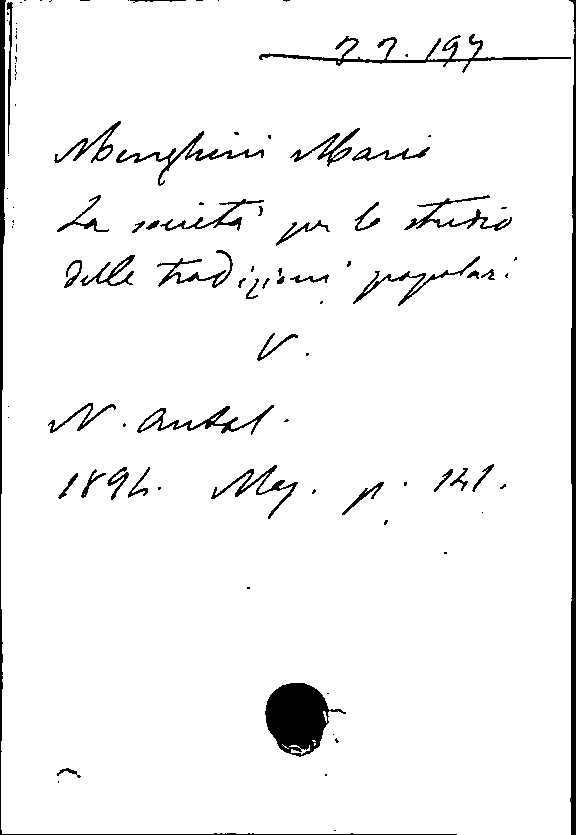 7.7.197
Menghini Mario
La società per lo studio
delle tradizioni popolari
V.
N. Antol.
1894. Mag. p. 141.